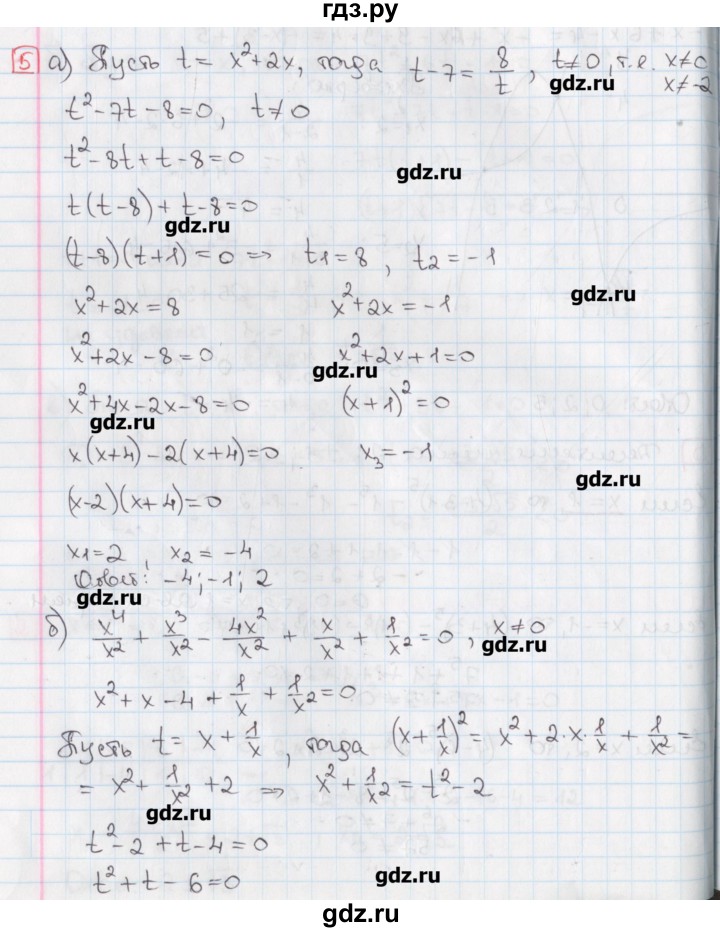 гдз.ру
5 а) Пусть t = x²+2x, тогда t-7 = 8/t, t≠0, т.е. x≠0
x≠-2
gdz.ru
t²-7t-8=0, t≠0
t²-8t+t-8=0
gdz.ru
t(t-8)+t-8=0
gdz.ru
(t-8)(t+1)=0 ⇒ t1=8, t2=-1
gdz.ru
x²+2x=8 x²+2x=-1
x²+2x-8=0 x²+2x+1=0
gdz.ru
x²+4x-2x-8=0 (x+1)²=0
gdz.ru
x(x+4)-2(x+4)=0 x₃=-1
gdz.ru
(x-2)(x+4)=0
x1=2, x2=-4
Ответ: -4; -1; 2
gdz.ru
б) x⁴/x² + x³/x² - 4x²/x² + x/x² + 1/x² = 0, x≠0
gdz.ru
x²+x-4+1/x+1/x²=0
Пусть t = x+1/x, тогда (x+1/x)² = x²+2·x·1/x+1/x² =
= x²+1/x²+2 ⇒ x²+1/x²=t²-2
gdz.ru
t²-2+t-4=0
t²+t-6=0
gdz.ru
gdz.ru